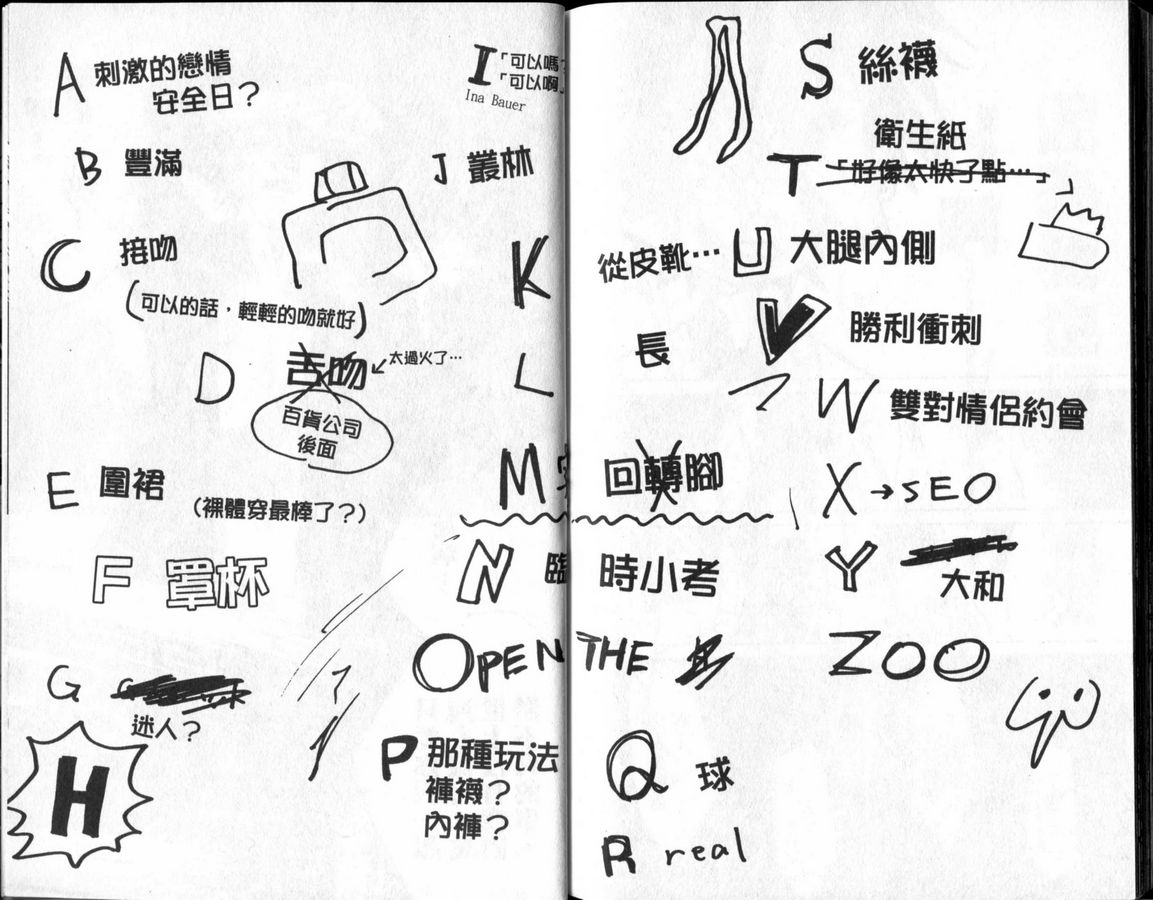 A 刺激的戀情
安全日？
B 豐滿
C 接吻
(可以的話，輕輕的吻就好)
D 舌吻 ↙太過火了…
百貨公司
後面
E 圍裙
(裸體穿最棒了？)
F 罩杯
G
迷人？
H
I「可以嗎？
「可以啊」
Ina Bauer
J 叢林
K 從皮靴…
L 長
M 回轉腳
N 臨時小考
OPEN THE
P 那種玩法
褲襪？
內褲？
Q 球
R real
S 絲襪
衛生紙
T「好像太快了點…」
U 大腿內側
V 勝利衝刺
W 雙對情侶約會
X→SEO
Y
大和
ZOO